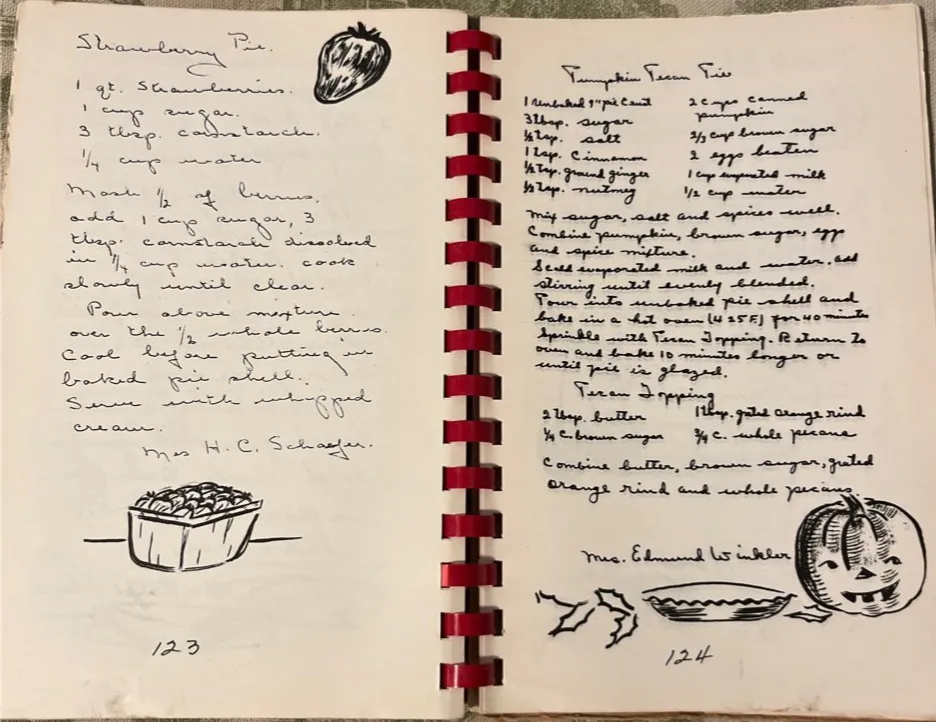 Strawberry Pie.
1 qt. Strawberries.
1 cup sugar.
3 tbsp. cornstarch.
1/4 cup water
Mash 1/2 of berries.
add 1 cup sugar, 3
tbsp. cornstarch dissolved
in 1/4 cup water. cook
slowly until clear.
Pour above mixture
over the 1/2 whole berries.
Cool before putting in
baked pie shell.
Serve with whipped
cream.
Mrs H. C. Schaefer.
123
Pumpkin Pecan Pie
1 Unbaked 9" pie crust
3 tbsp. sugar
1/2 tsp. salt
1 tsp. Cinnamon
1/2 tsp. ground ginger
1/2 tsp. nutmeg
2 cups canned
pumpkin
2/3 cup brown sugar
2 eggs beaten
1 cup evaporated milk
1/2 cup water
Mix sugar, salt and spices well.
Combine pumpkin, brown sugar, eggs
and spice mixture.
Scald evaporated milk and water. add
stirring until evenly blended.
Pour into unbaked pie shell and
bake in a hot oven (425F) for 40 minutes
Sprinkle with Pecan Topping. Return to
oven and bake 10 minutes longer or
until pie is glazed.
Pecan Topping
2 tbsp. butter 1 tbsp. grated orange rind
1/4 c. brown sugar 3/4 c. whole pecans
Combine butter, brown sugar, grated
orange rind and whole pecans.
Mrs. Edmund Winkler
124